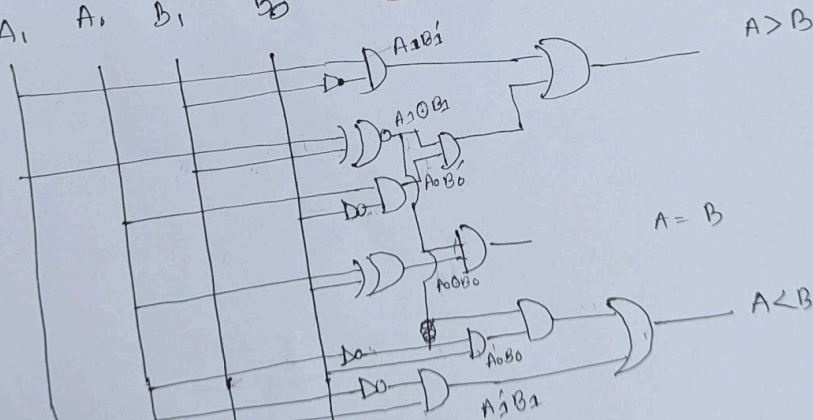 A₁ A₀ B₁ B₀
A1B1'
A > B
A1⊙B1
A0B0'
A = B
A0⊙B0
A < B
A0'B0
A1'B1